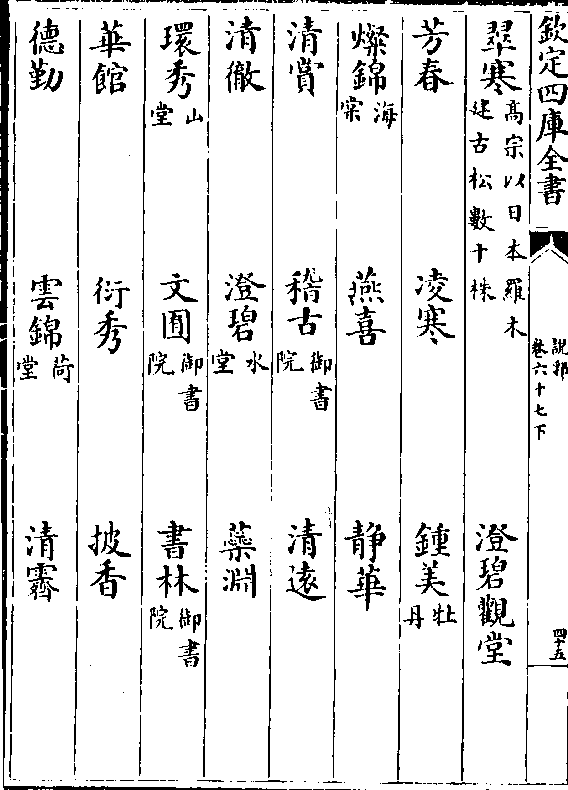 欽定四庫全書
說郛
卷六十七下
四十五
翠寒 高宗以日本羅木建古松數十株 澄碧觀堂
芳春 凌寒 鍾美 牡丹
燦錦 海棠 燕喜 静華
清賞 稽古 御書院 清遠
清徹 澄碧 水堂 蘂淵
環秀 山堂 文囿 御書院 書林 御書院
華館 衍秀 披香
德勤 雲錦 荷堂 清霽